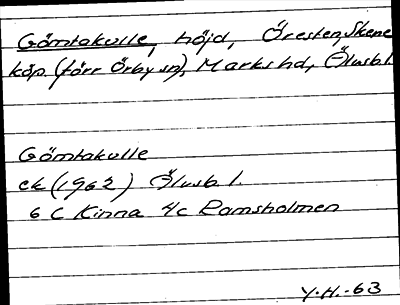 Gömtakulle, höjd, Öresten, Skene
köp. (förr Örby sn), Marks hd, Älvsb. l.
Gömtakulle
ek (1962) Älvsb. l.
6 C Kinna 4c Ramsholmen
Y.H.-63